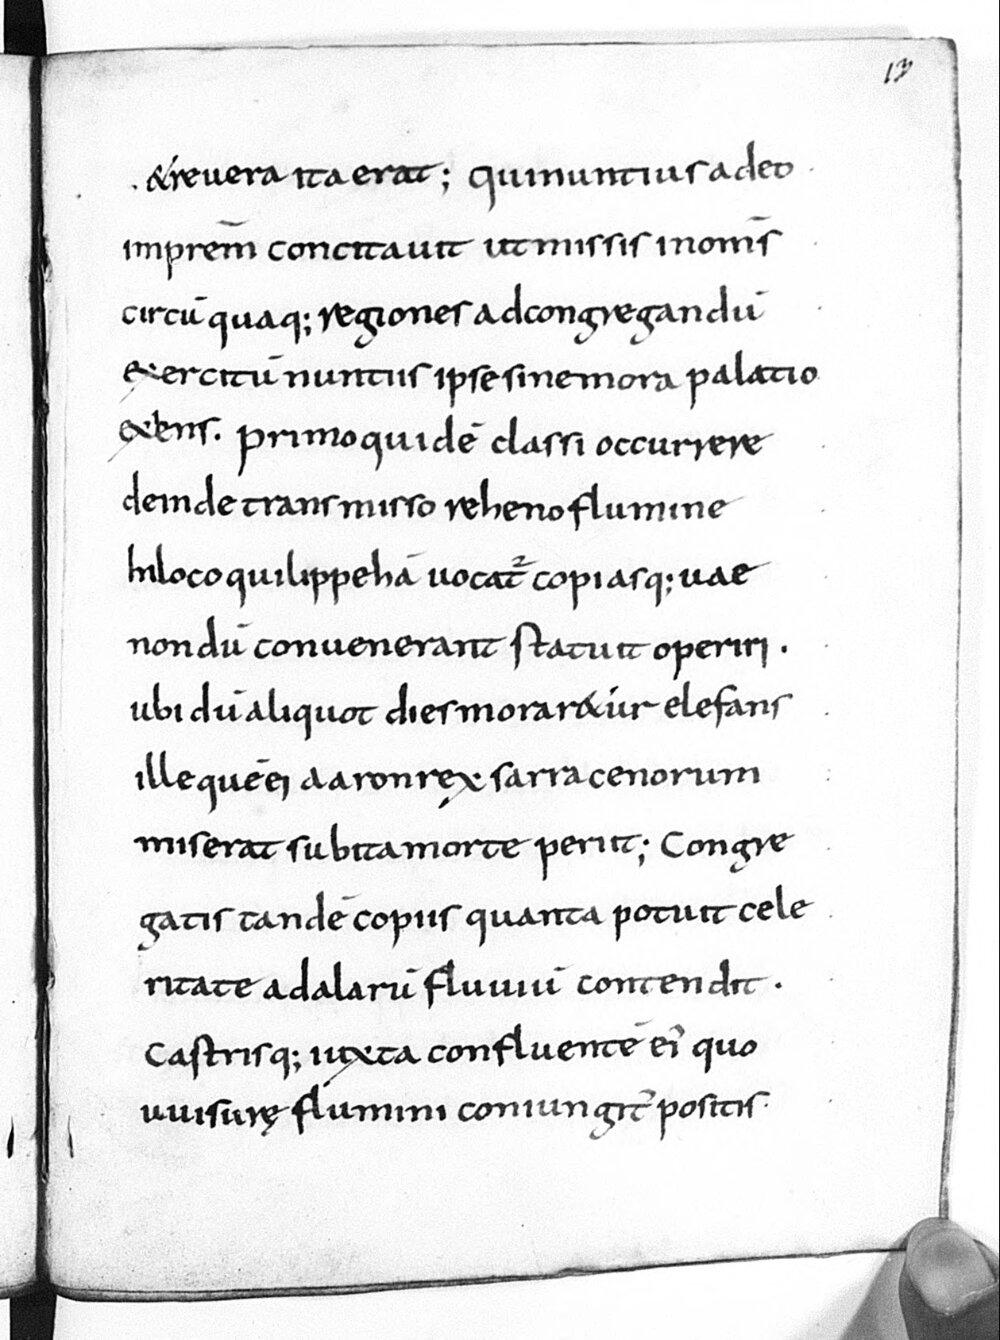 13
&revera ita erat; Qui nuntius adeo
imprem̄ concitavit ut missis in om̄s
circū quaq; regiones ad congregandū
exercitū nuntiis ipse sine mora palatio
exiens. primo quidē classi occurrere
deinde transmisso rheno flumine
In loco qui lippehā vocat᷑ copias q; uae
nondū convenerant statuit operiri.
ubi dū aliquot dies morar&ur elefans
ille quē ei aaron rex sarracenorum
miserat subita morte periit; Congre
gatis tandē copiis quanta potuit cele
ritate ad alarū fluviū contendit.
Castrisq; iuxta confluentē ei᾽ quo
uuisurę flumini coniungit᷑ positis